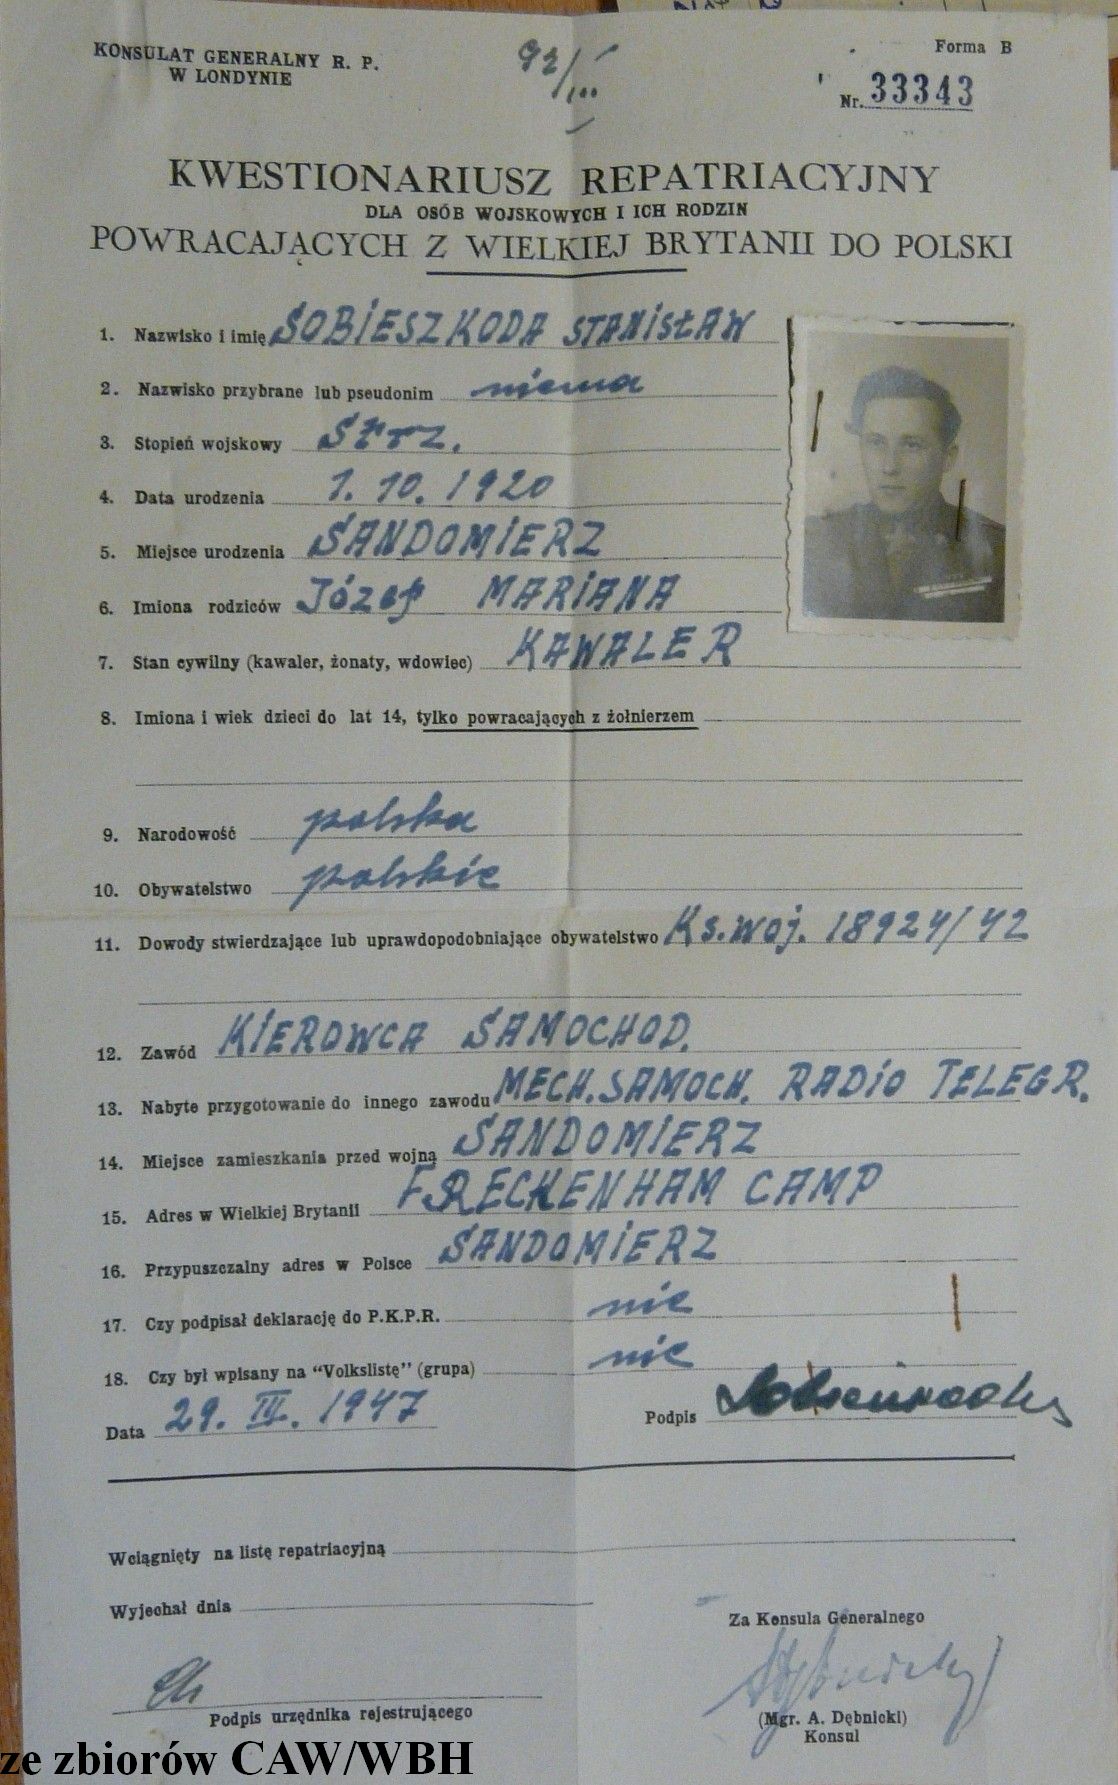 KONSULAT GENERALNY R. P.
W LONDYNIE
92/III
Forma B
Nr. 33343
KWESTIONARIUSZ REPATRIACYJNY
DLA OSÓB WOJSKOWYCH I ICH RODZIN
POWRACAJĄCYCH Z WIELKIEJ BRYTANII DO POLSKI
1. Nazwisko i imię SOBIESZKODA STANISŁAW
2. Nazwisko przybrane lub pseudonim niema
3. Stopień wojskowy Strz.
4. Data urodzenia 1. 10. 1920
5. Miejsce urodzenia SANDOMIERZ
6. Imiona rodziców Józef MARIANA
7. Stan cywilny (kawaler, żonaty, wdowiec) KAWALER
8. Imiona i wiek dzieci do lat 14, tylko powracających z żołnierzem
9. Narodowość polska
10. Obywatelstwo polskie
11. Dowody stwierdzające lub uprawdopodobniające obywatelstwo Ks. woj. 18924/42
12. Zawód KIEROWCA SAMOCHOD.
13. Nabyte przygotowanie do innego zawodu MECH. SAMOCH. RADIO TELEGR.
14. Miejsce zamieszkania przed wojną SANDOMIERZ
15. Adres w Wielkiej Brytanii FRECKENHAM CAMP
16. Przypuszczalny adres w Polsce SANDOMIERZ
17. Czy podpisał deklarację do P.K.P.R. nie
18. Czy był wpisany na "Volkslistę" (grupa) nie
Data 29. III. 1947
Podpis
Wciągnięty na listę repatriacyjną
Wyjechał dnia
Za Konsula Generalnego
Podpis urzędnika rejestrującego
(Mgr. A. Dębnicki)
Konsul
ze zbiorów CAW/WBH